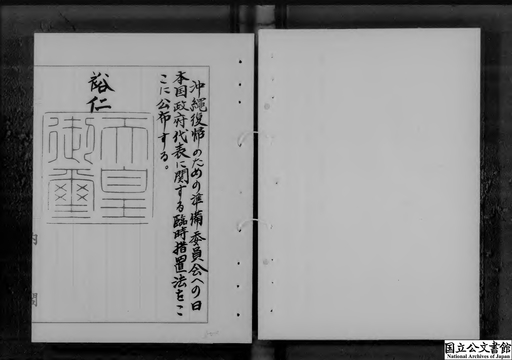 沖縄復帰のための準備委員会への日
本国政府代表に関する臨時措置法をこ
こに公布する。
裕仁
天皇
御璽
内閣
国立公文書館
National Archives of Japan